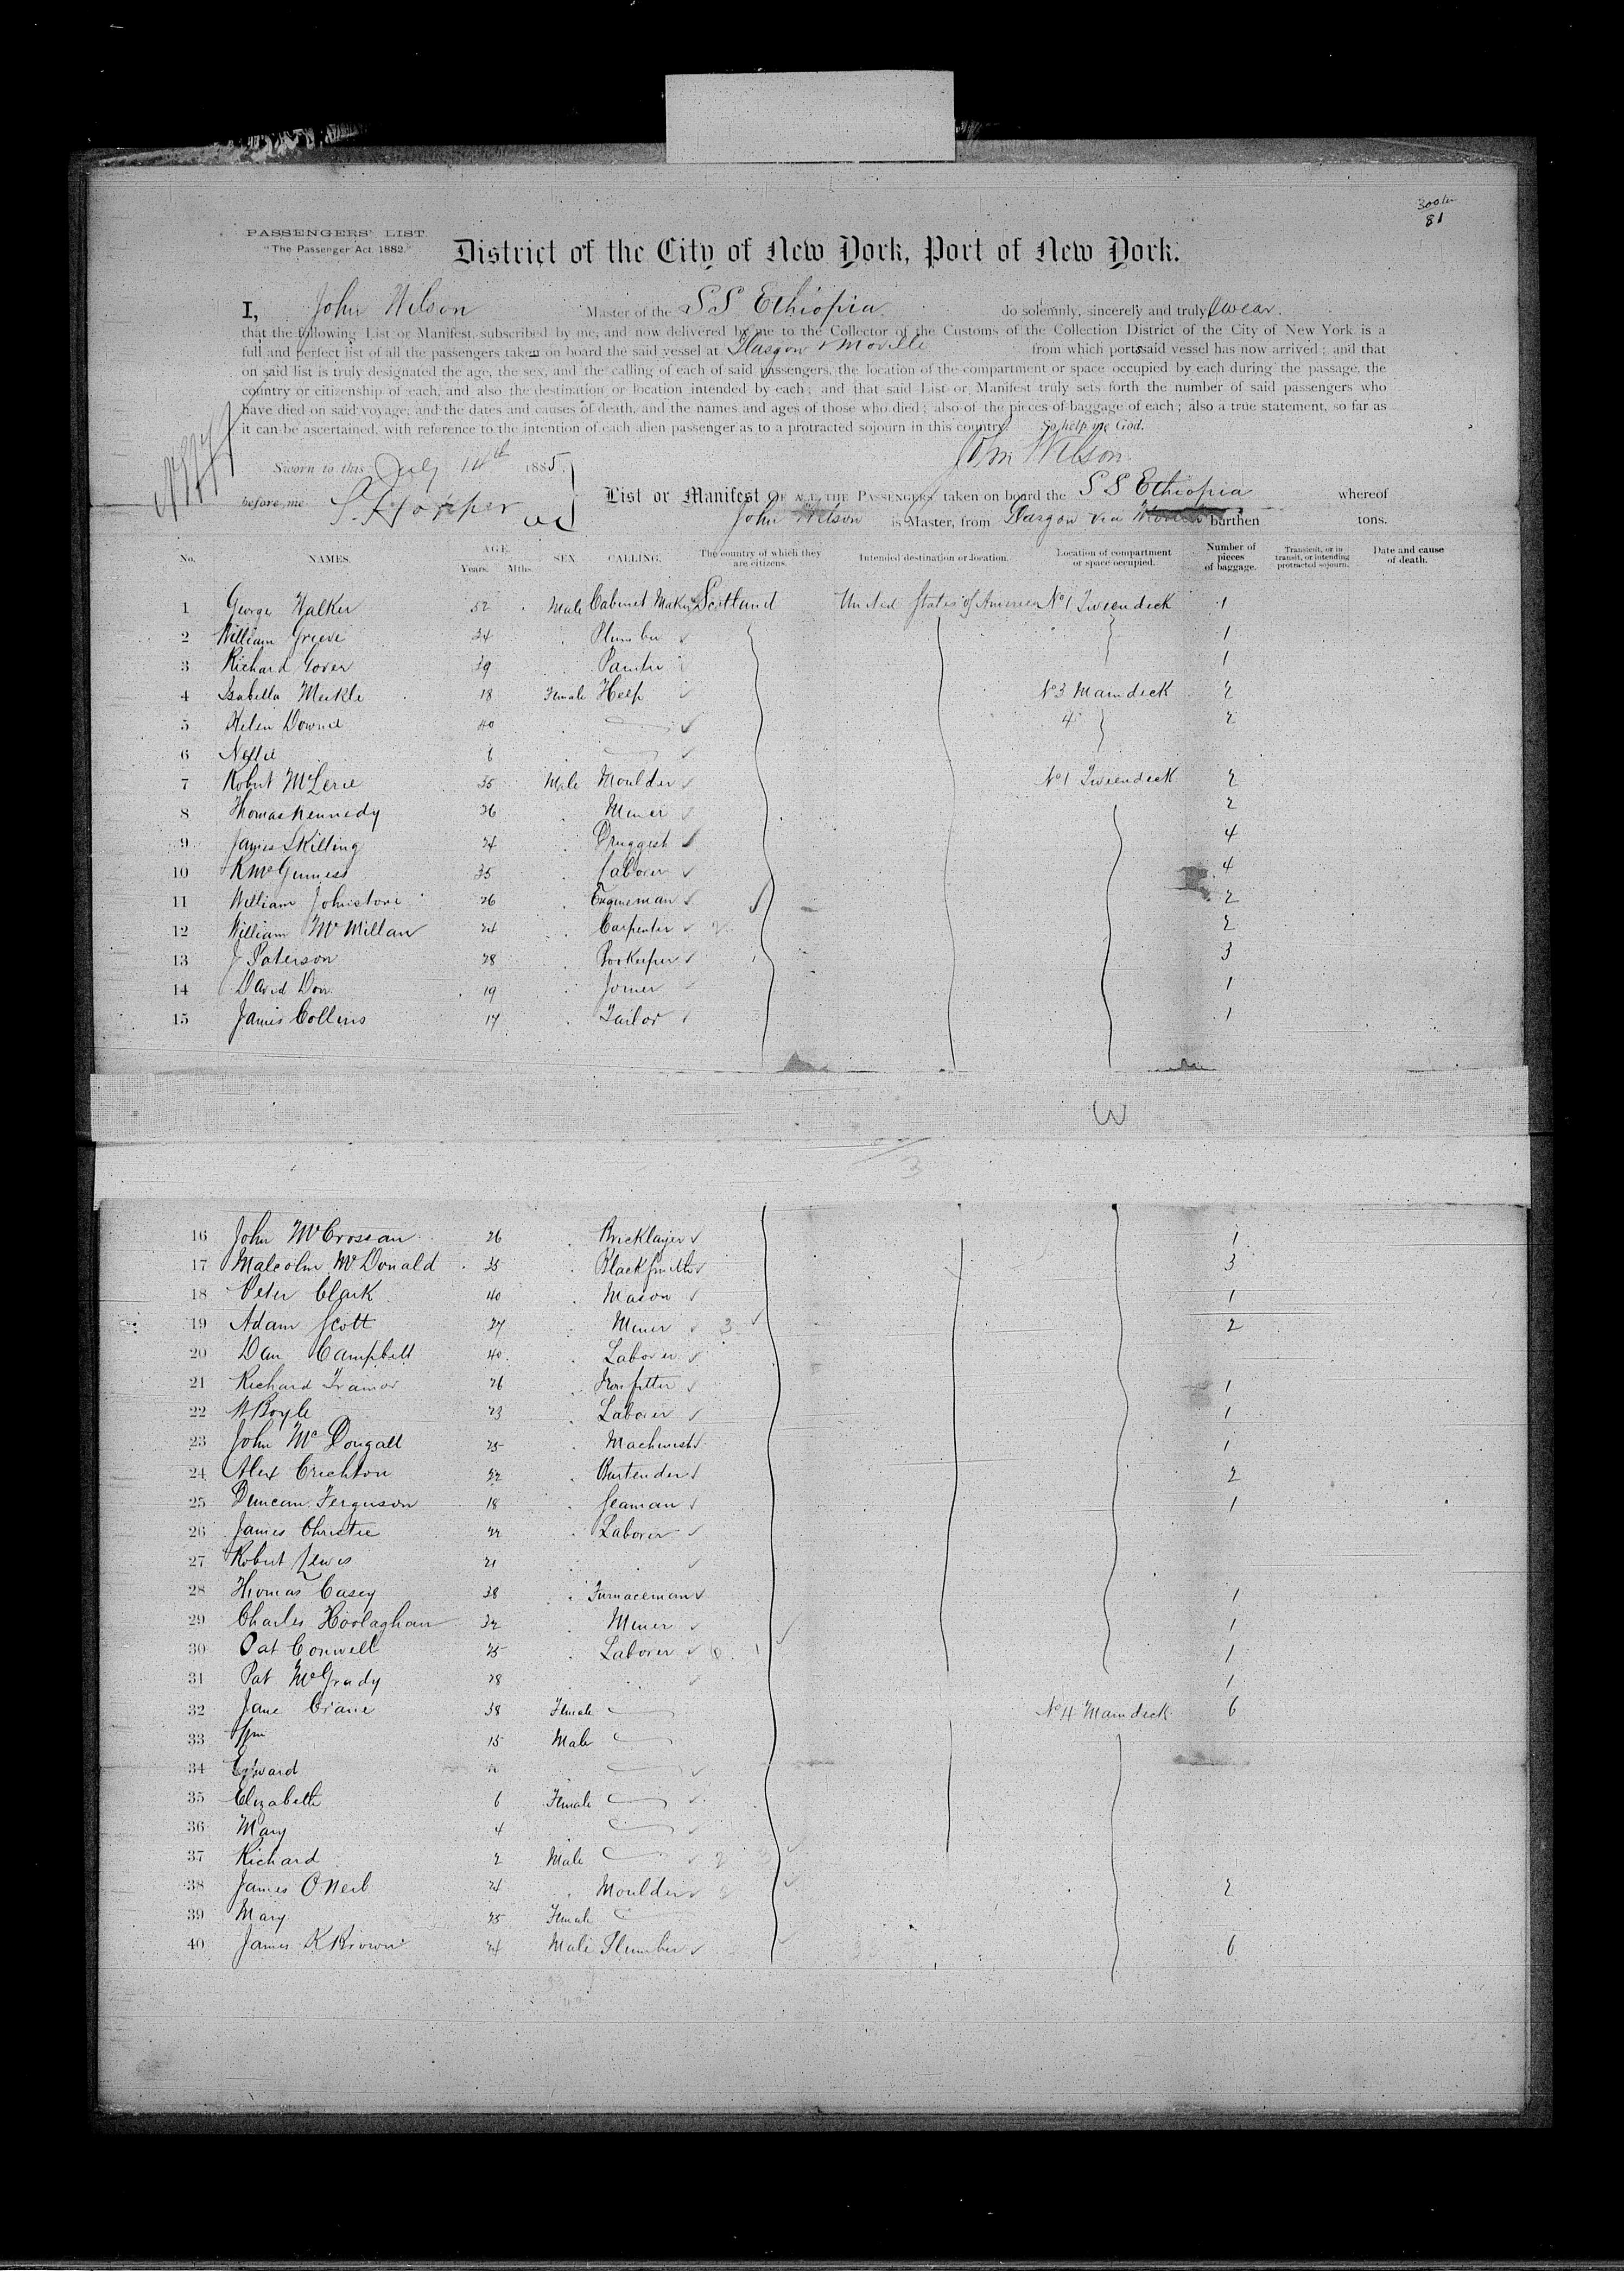 300 ter
81
PASSENGERS' LIST.
"The Passenger Act, 1882."
District of the City of New York, Port of New York.
I, John Wilson Master of the SS Ethiopia do solemnly, sincerely and truly swear.
that the following List or Manifest, subscribed by me, and now delivered by me to the Collector of the Customs of the Collection District of the City of New York is a
full and perfect list of all the passengers taken on board the said vessel at Glasgow & Moville from which ports said vessel has now arrived; and that
on said list is truly designated the age, the sex, and the calling of each of said passengers, the location of the compartment or space occupied by each during the passage, the
country or citizenship of each, and also the destination or location intended by each; and that said List or Manifest truly sets forth the number of said passengers who
have died on said voyage, and the dates and causes of death, and the names and ages of those who died; also of the pieces of baggage of each; also a true statement, so far as
it can be ascertained, with reference to the intention of each alien passenger as to a protracted sojourn in this country. So help me God.
John Wilson.
Sworn to this July 14th 1885
before me
List or Manifest OF ALL THE PASSENGERS taken on board the SS Ethiopia whereof
John Wilson is Master, from Glasgow via burthen tons.
No. NAMES. AGE. Years. Mths. SEX CALLING. The country of which they are citizens. Intended destination or location. Location of compartment or space occupied. Number of pieces of baggage. Transient, or in transit, or intending protracted sojourn. Date and cause of death.
1 George Walker 52 Male Cabinet Maker Scotland United States of America No 1 Tweendeck 1
2 William Grieve 24 Plumber 1
3 Richard Gover 29 Painter 1
4 Isabella Meikle 18 Female Help No 3 Maindeck 2
5 Helen Downie 40 4 2
6 Nellie 6
7 Robert McLerie 35 Male Moulder No 1 Tweendeck 2
8 Thomas Kennedy 26 Miner 2
9 James Skilling 24 Druggist 4
10 R McGuiness 35 Laborer 4
11 William Johnstone 26 Engineman 2
12 William McMillan 24 Carpenter 2
13 J Paterson 28 Bookeeper 3
14 David Don 19 Joiner 1
15 James Collins 17 Tailor 1
W
3
16 John McCrossan 26 Bricklayer 1
17 Malcolm McDonald 35 Blacksmith 3
18 Peter Clark 40 Mason 1
19 Adam Scott 27 Miner 3 2
20 Dan Campbell 40 Laborer
21 Richard Trainor 26 Ironfitter 1
22 Boyle 23 Laborer 1
23 John McDougall 25 Machinist 1
24 Alex Crichton 22 Bartender 2
25 Duncan Ferguson 18 Seaman 1
26 James Christie 22 Laborer
27 Robert Lewis 21
28 Thomas Casey 38 Furnaceman 1
29 Charles Hoolaghan 32 Miner 1
30 Pat Conwell 25 Laborer 1
31 Pat McGrady 28 1
32 Jane Crane 38 Female No 4 Maindeck 6
33 Wm 15 Male
34 Edward
35 Elizabeth 6 Female
36 Mary 4
37 Richard 2 Male
38 James O'Neil 24 Moulder 2
39 Mary 25 Female
40 James K Brown 24 Male Plumber 6